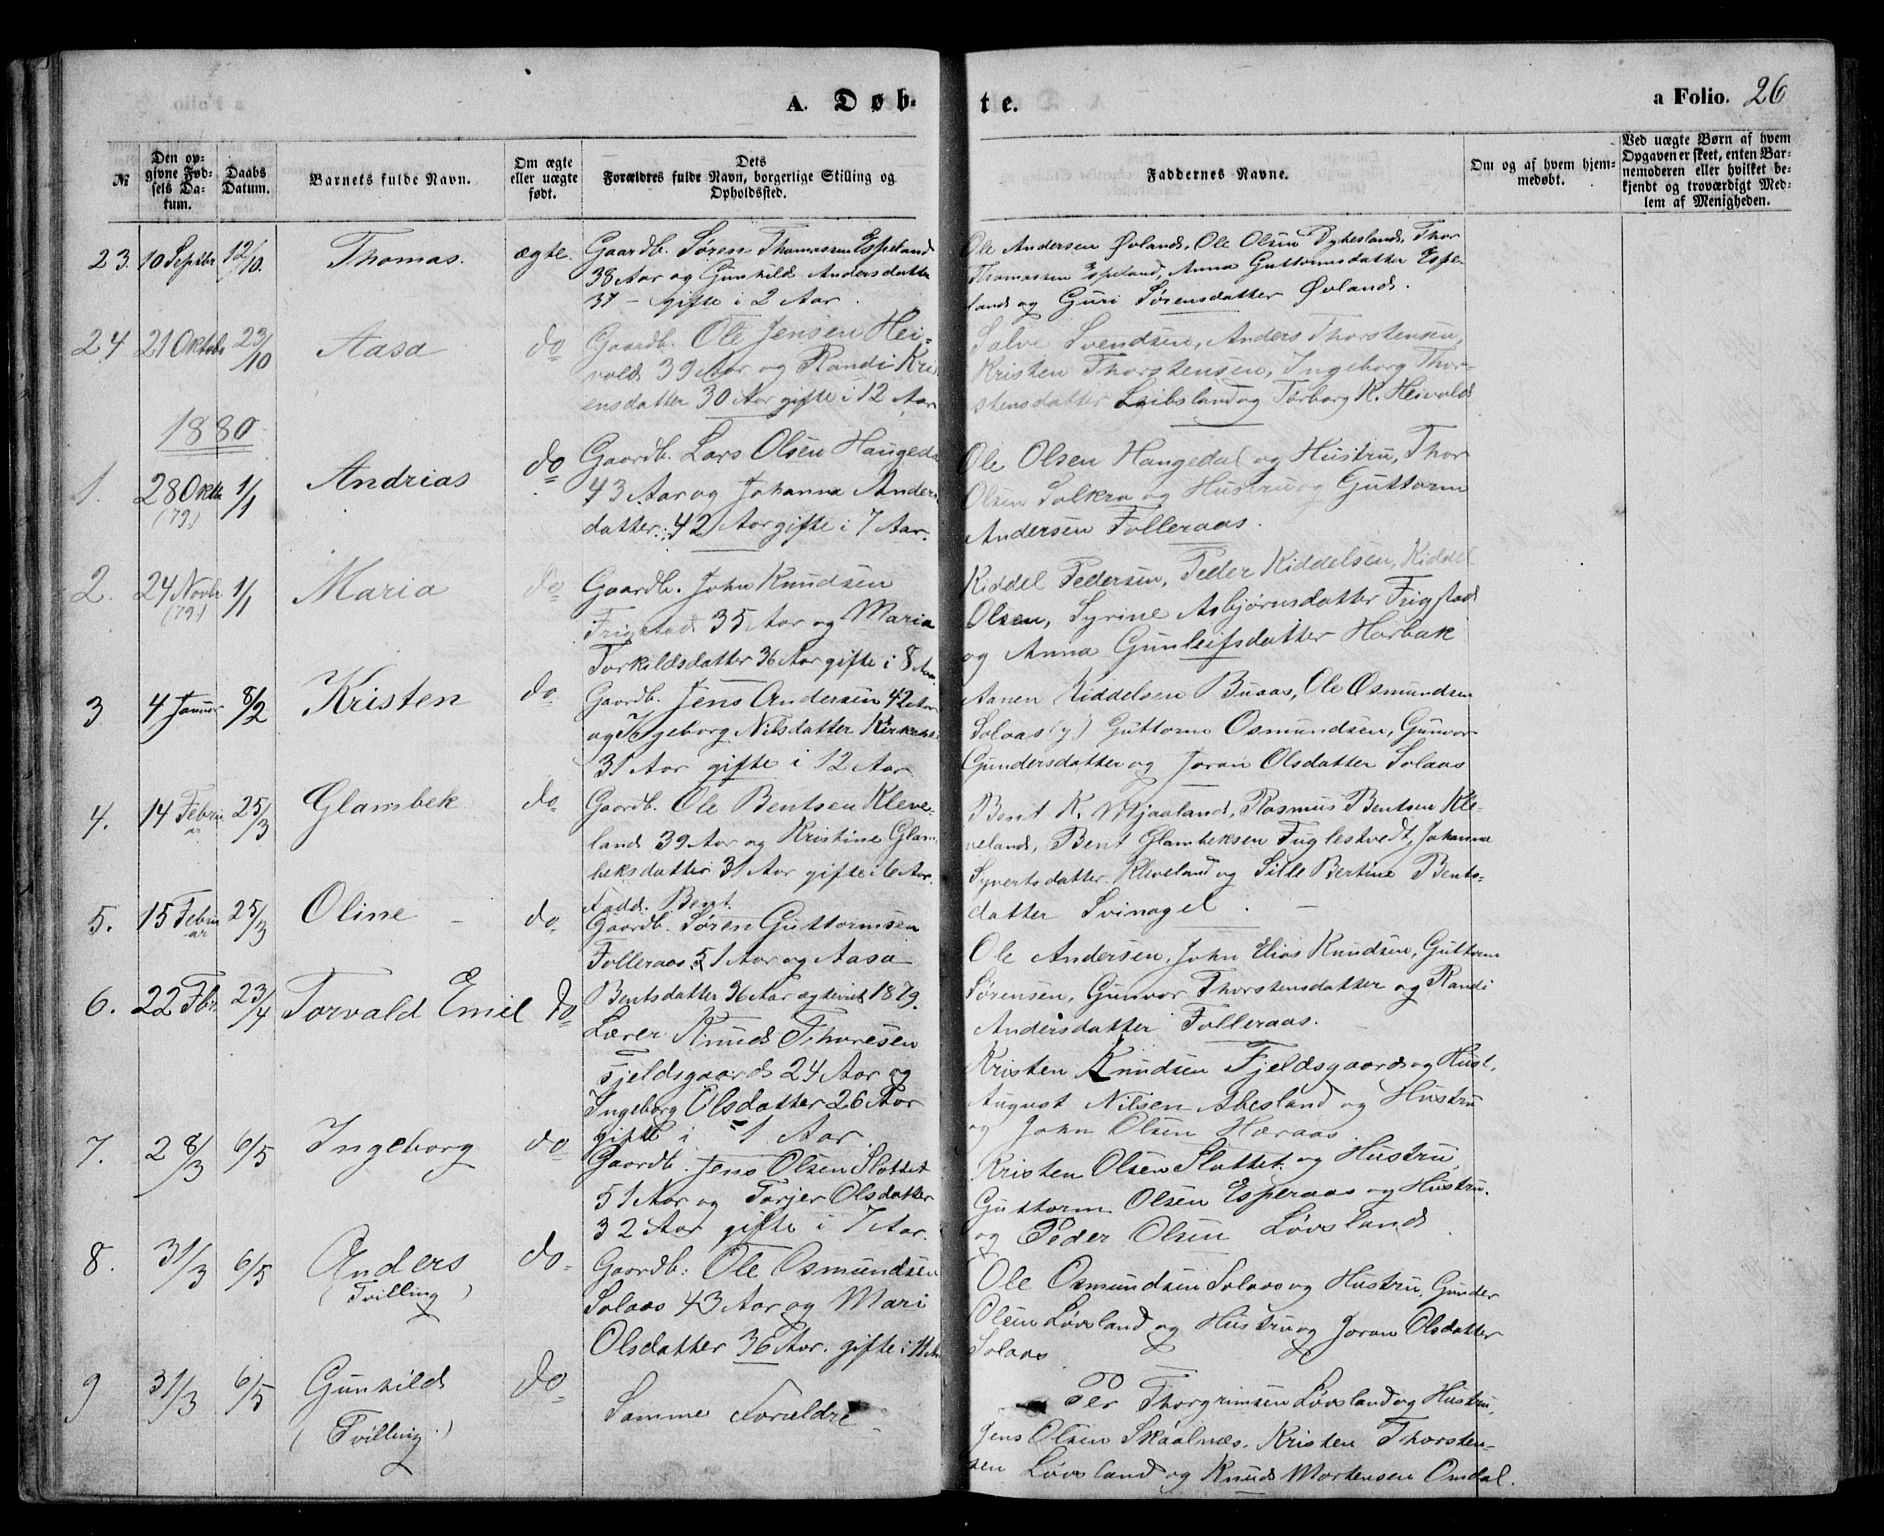 A. Døb-
te.
a Folio. 26
№
Den op-
givne Fød-
sels Da-
tum.
Daabs
Datum.
Barnets fulde Navn.
Om ægte
eller uægte
født.
Dets
Forældres fulde Navn, borgerlige Stilling og
Opholdssted.
Faddernes Navne.
Om og af hvem hjem-
medøbt.
Ved uægte Børn af hvem
Opgaven er skeet, enten Bar-
nemoderen eller hvilket be-
kjendt og troværdigt Med-
lem af Menigheden.
23. 10 Septbr 12/10. Thomas. ægte.
Gaardb. Søren Thomassen Espeland
38 Aar og Gunhild Andersdatter
37 – gifte i 2 Aar.
Ole Andersen Øvland, Ole Olsen Dykesland, Thor
Thomassen Espeland, Anna Guttormsdatter Espe-
land og Guri Sørensdatter Øvland.
24 21 Oktobr 23/10 Aasa do
Gaardb. Ole Jensen Hei-
vold 39 Aar og Randi Kri
ensdatter 30 Aar gifte i 12 Aar
Salve Svendsen, Anders Thorstensen,
Kristen Thorstensen, Ingeborg Thor-
stensdatter Leibsland og Torborg K. Heivold
1880
1. 28 Oktbr (79) 1/1 Andrias do
Gaardb. Lars Olsen Haugeda
43 Aar og Johanna Anders
datter: 42 Aar gifte i 7 Aar.
Ole Olsen Haugedal og Hustru, Thor
Olsen Solkra og Hustru og Guttorm
Andersen Folleraas.
2. 24 Novbr (79) 1/1 Maria do
Gaardb. John Knudsen
Frigstad 35 Aar og Maria
Torkildsdatter 36 Aar gifte i 8 Aar
Kiddel Pedersen, Peder Kiddelsen, Kiddel
Olsen, Syrine Asbjørnsdatter Frigstad
og Anna Gunleifsdatter Horbak
3 4 Januar 8/2 Kristen do
Gaardb. Jens Andersen 42 Aar
og Ingeborg Nilsdatter
31 Aar gifte i 12 Aar
Aanen Kiddelsen Buaas, Ole Osmundsen
Solaas (y) Guttorm Osmundsen, Gunvor
Gundersdatter og Joran Olsdatter Solaas
4. 14 Februar 25/3 Glambek do
Gaardb. Ole Bentsen Kleve-
land 39 Aar og Kristine Glam
beksdatter 31 Aar gifte i 6 Aar.
Fadd. Bent
Bent K. Mjaaland, Rasmus Bentsen Kle-
veland, Bent Glambeksen Fuglestvedt, Johanne
Syvertsdatter Kleveland og Sille Bertine Bents-
datter Svinagel.
5. 15 Februar 25/3 Oline do
Gaardb. Søren Guttormsen
Folleraas 51 Aar og Aasa
Bentsdatter 36 Aar ægteviet 1879.
Ole Andersen, John Elias Knudsen, Guttorm
Sørensen, Gunvor Thorstensdatter og Randi
Andersdatter Folleraas.
6. 22 Fbr. 23/4 Torvald Emil do
Lærer Knud Thoresen
Fjeldsgaard 24 Aar og
Ingeborg Olsdatter 26 Aar
gifte i 1 Aar.
Kristen Knudsen Fjeldsgaard og Hust.
August Nilsen Abesland og Hustru
og John Olsen Høraas.
7. 28/3 6/5 Ingeborg do
Gaardb. Jens Olsen Slottet
51 Aar og Torjer Olsdatter
32 Aar gifte i 7 Aar.
Kristen Olsen Slottet og Hustru
Guttorm Olsen Esperaas og Hustru.
og Peder Olsen Løvsland
8. 31/3 6/5 Anders (Tvilling) do.
Gaardb: Ole Osmundsen
Solaas 43 Aar og Mari
Olsdatter 36 Aar. gifte i 11 Aar
Ole Osmundsen Solaas og Hustru, Gunder
Olsen Løvsland og Hustru og Joran Olsdatter
Solaas
9 31/3 6/5 Gunhild (Tvilling.) do
Samme Forældre
Per Thorgrimsen Løvsland og Hustru,
Jens Olsen Skaalnæs, Kristen Thorsten-
sen Løvsland og Knud Mortensen Omdal.